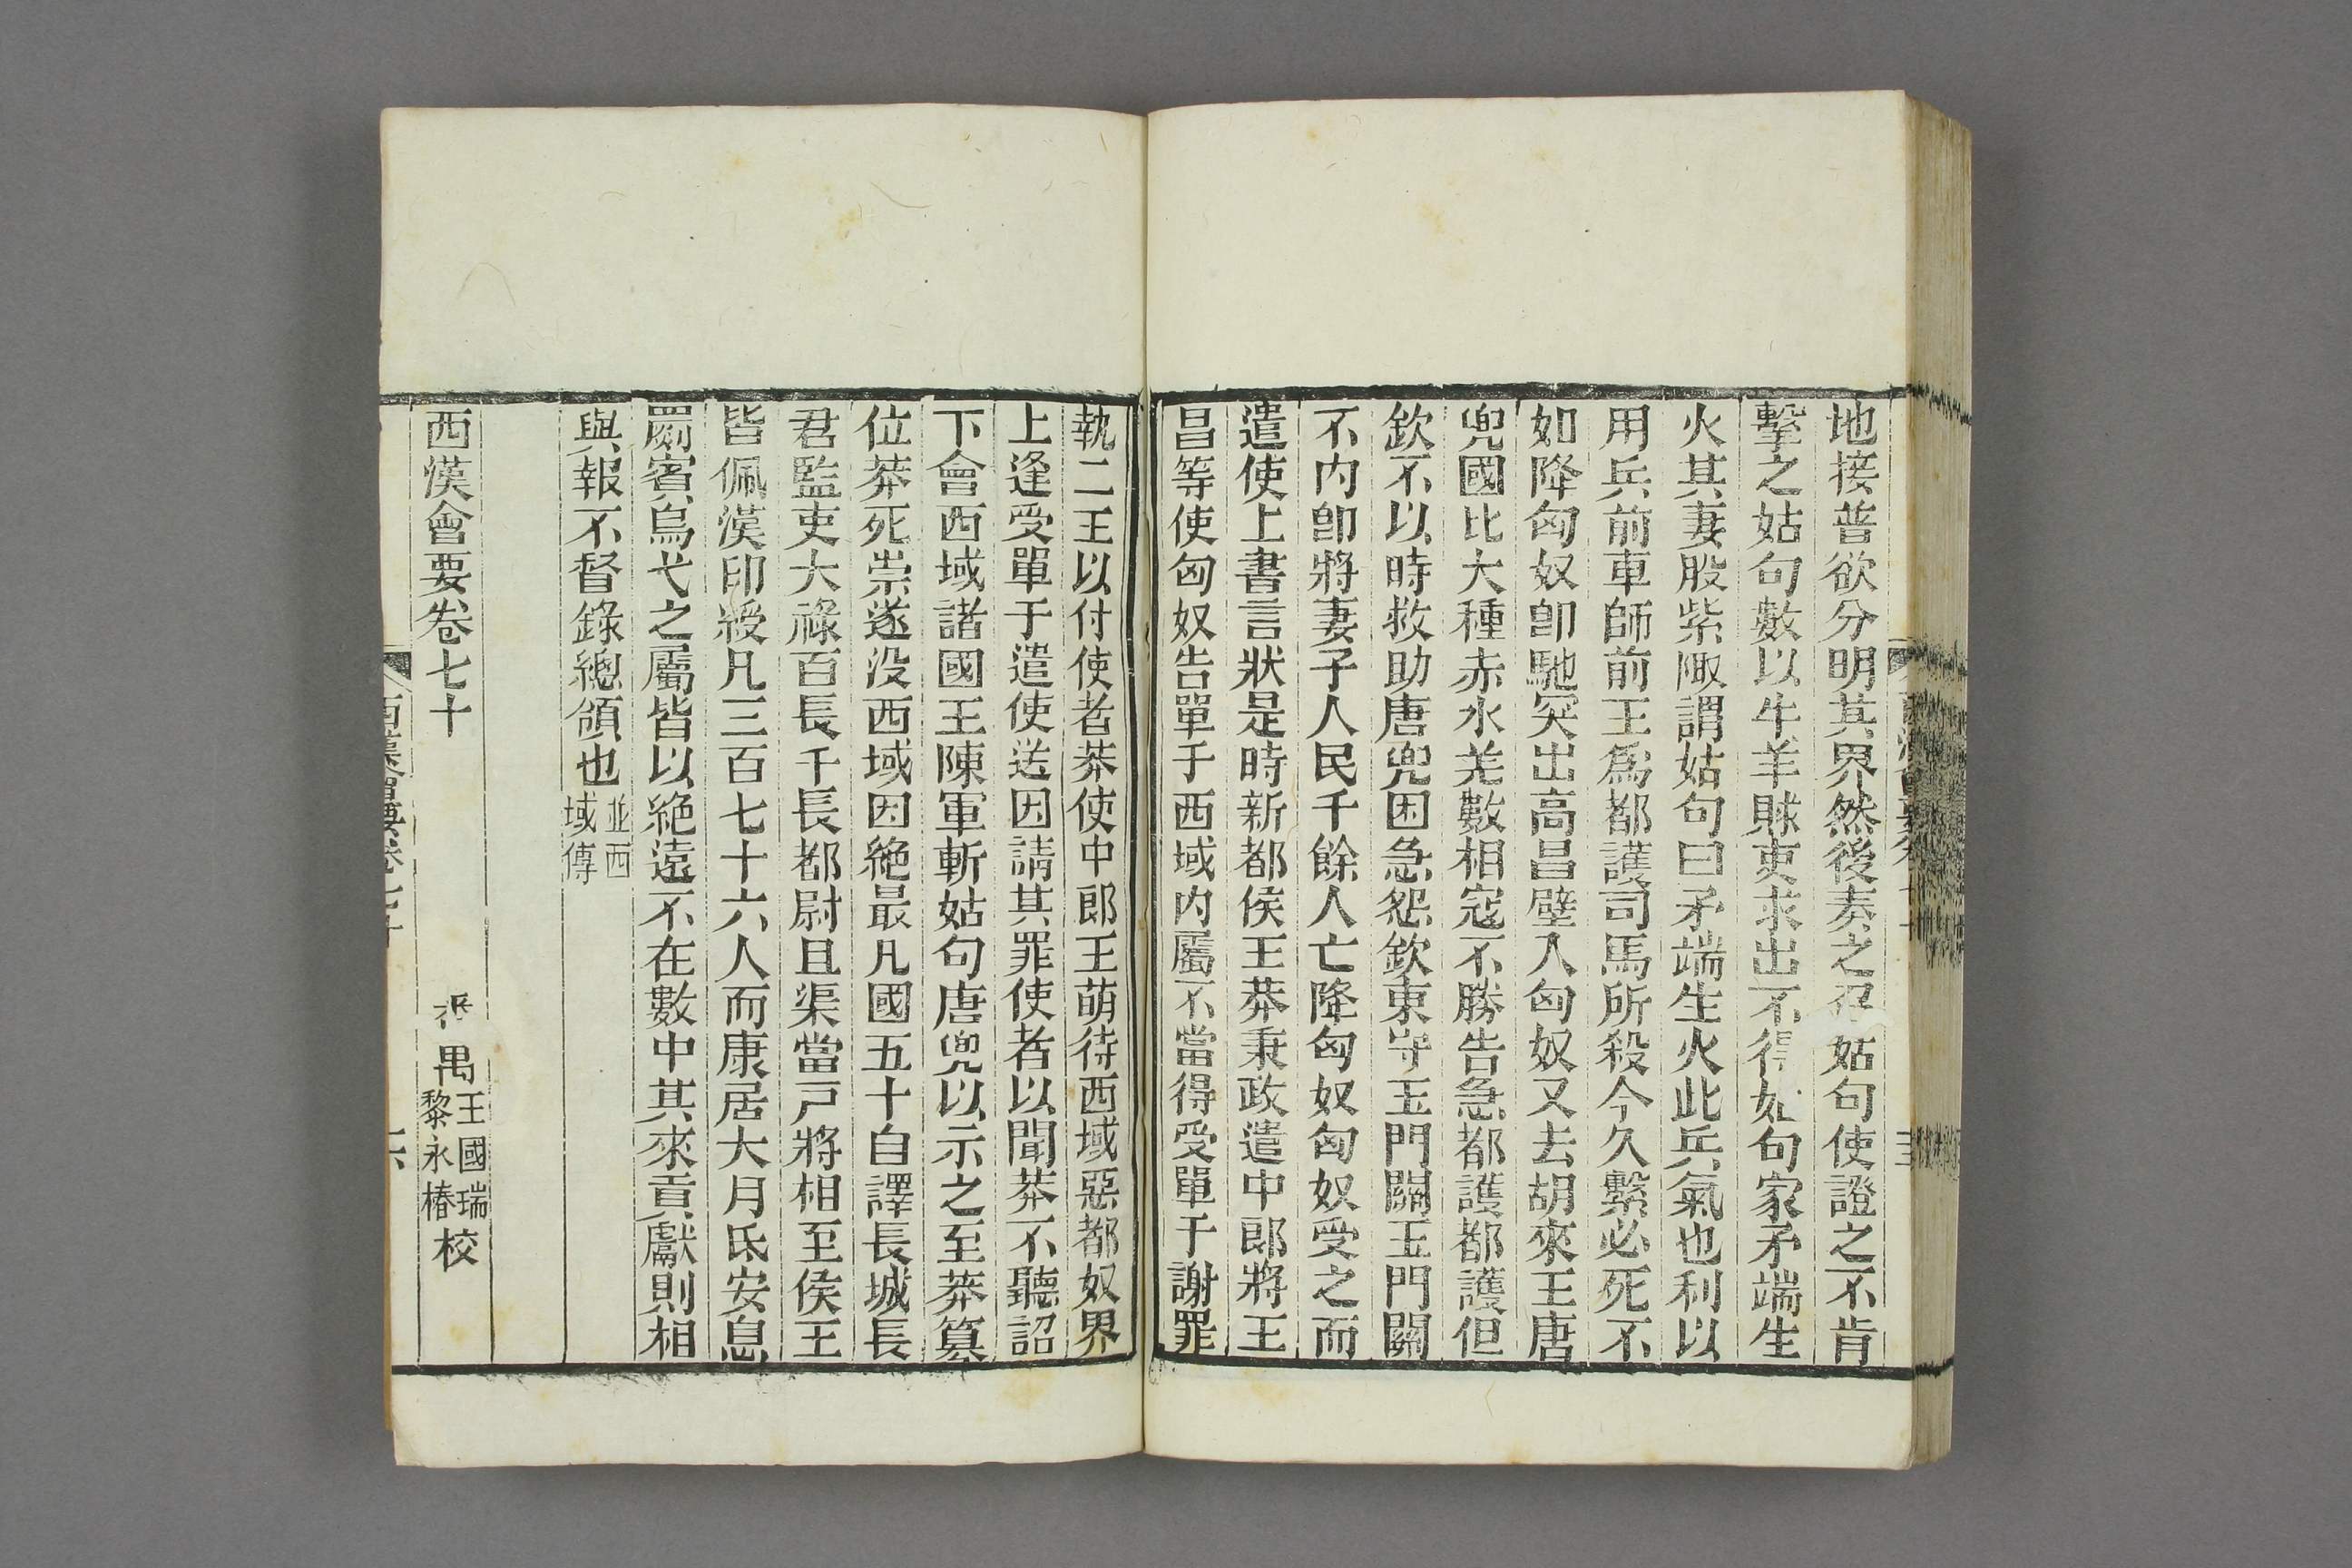 地接普欲分明其界然後奏之召姑句使證之不肯
擊之姑句數以牛羊賕吏求出不得姑句家矛端生
火其妻股紫陬謂姑句曰矛端生火此兵氣也利以
用兵前車師前王爲都護司馬所殺今久繫必死不
如降匈奴卽馳突出高昌壁入匈奴又去胡來王唐
兜國比大種赤水羌數相寇不勝告急都護都護但
欽不以時救助唐兜困急怨欽東守玉門關玉門關
不內卽將妻子人民千餘人亡降匈奴匈奴受之而
遣使上書言狀是時新都侯王莽秉政遣中郎將王
昌等使匈奴告單于西域內屬不當得受單于謝罪
執二王以付使者莽使中郎王萌待西域惡都奴界
上逢受單于遣使送因請其罪使者以聞莽不聽詔
下會西域諸國王陳軍斬姑句唐兜以示之至莽篡
位莽死崇遂没西域因絶最凡國五十自譯長城長
君監吏大祿百長千長都尉且渠當戸將相至侯王
皆佩漢印綬凡三百七十六人而康居大月氐安息
罽賓烏弋之屬皆以絶遠不在數中其來貢獻則相
與報不督錄總領也並西域傳
西漢會要卷七十
禺王國瑞黎永椿校
西漢會要卷七十